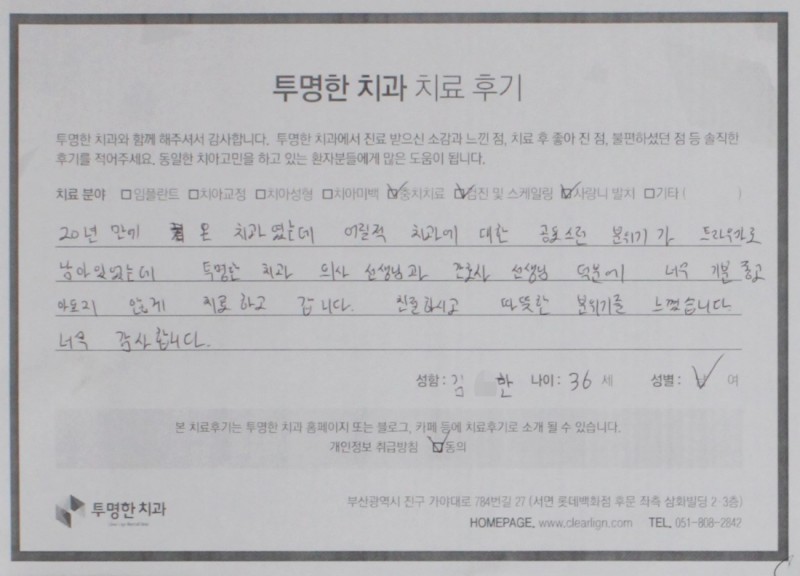 투명한 치과 치료 후기
투명한 치과와 함께 해주셔서 감사합니다. 투명한 치과에서 진료 받으신 소감과 느낀 점, 치료 후 좋아 진 점, 불편하셨던 점 등 솔직한
후기를 적어주세요. 동일한 치아고민을 하고 있는 환자분들에게 많은 도움이 됩니다.
치료 분야 □임플란트 □치아교정 □치아성형 □치아미백 ☑충치치료 ☑검진 및 스케일링 ☑사랑니 발치 □기타 ( )
20년 만에 온 치과 였는데 어릴적 치과에 대한 공포스런 분위기가 트라우마로
남아있었는데 투명한 치과 의사 선생님과 간호사 선생님 덕분에 너무 기분 좋고
아프지 않게 치료하고 갑니다. 친절하시고 따뜻한 분위기를 느꼈습니다.
너무 감사합니다.
성함 : 김 한 나이 : 36 세 성별 : ☑ 여
본 치료후기는 투명한 치과 홈페이지 또는 블로그, 카페 등에 치료후기로 소개 될 수 있습니다.
개인정보 취급방침 ☑동의
투명한 치과
부산광역시 진구 가야대로 784번길 27 (서면 롯데백화점 후문 좌측 삼화빌딩 2·3층)
HOMEPAGE. www.clearlign.com TEL. 051-808-2842